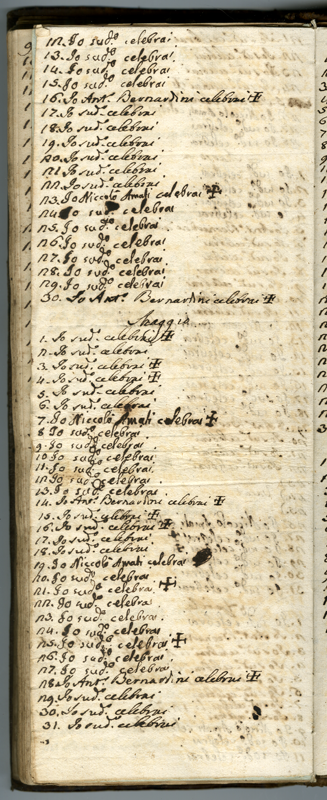 12. Io sud.º celebrai
13. Io sud.º celebrai
14. Io sud.º celebrai
15. Io sud.º celebrai
16. Io Ant.º Bernardini celebrai ✠
17. Io sud.º celebrai
18. Io sud.º celebrai
19. Io sud.º celebrai
20. Io sud.º celebrai
21. Io sud.º celebrai
22. Io sud.º celebrai
23. Io Niccolò Amati celebrai ✠
24. Io sud.º celebrai
25. Io sud.º celebrai
26. Io sud.º celebrai
27. Io sud.º celebrai
28. Io sud.º celebrai
29. Io sud.º celebrai
30. Io Ant.º Bernardini celebrai ✠
Maggio
1. Io sud.º celebrai ✠
2. Io sud.º celebrai
3. Io sud.º celebrai ✠
4. Io sud.º celebrai ✠
5. Io sud.º celebrai
6. Io sud.º celebrai
7. Io Niccolò Amati celebrai ✠
8 Io sud.º celebrai
9. Io sud.º celebrai
10. Io sud.º celebrai
11. Io sud.º celebrai
12. Io sud.º celebrai
13. Io sud.º celebrai
14. Io Ant.º Bernardini celebrai ✠
15. Io sud.º celebrai ✠
16. Io sud.º celebrai ✠
17. Io sud.º celebrai
18. Io sud.º celebrai
19. Io Niccolò Amati celebrai
20. Io sud.º celebrai
21. Io sud.º celebrai ✠
22. Io sud.º celebrai
23. Io sud.º celebrai
24. Io sud.º celebrai
25. Io sud.º celebrai ✠
26. Io sud.º celebrai
27. Io sud.º celebrai
28 Io Ant.º Bernardini celebrai ✠
29. Io sud.º celebrai
30. Io sud.º celebrai
31. Io sud.º celebrai